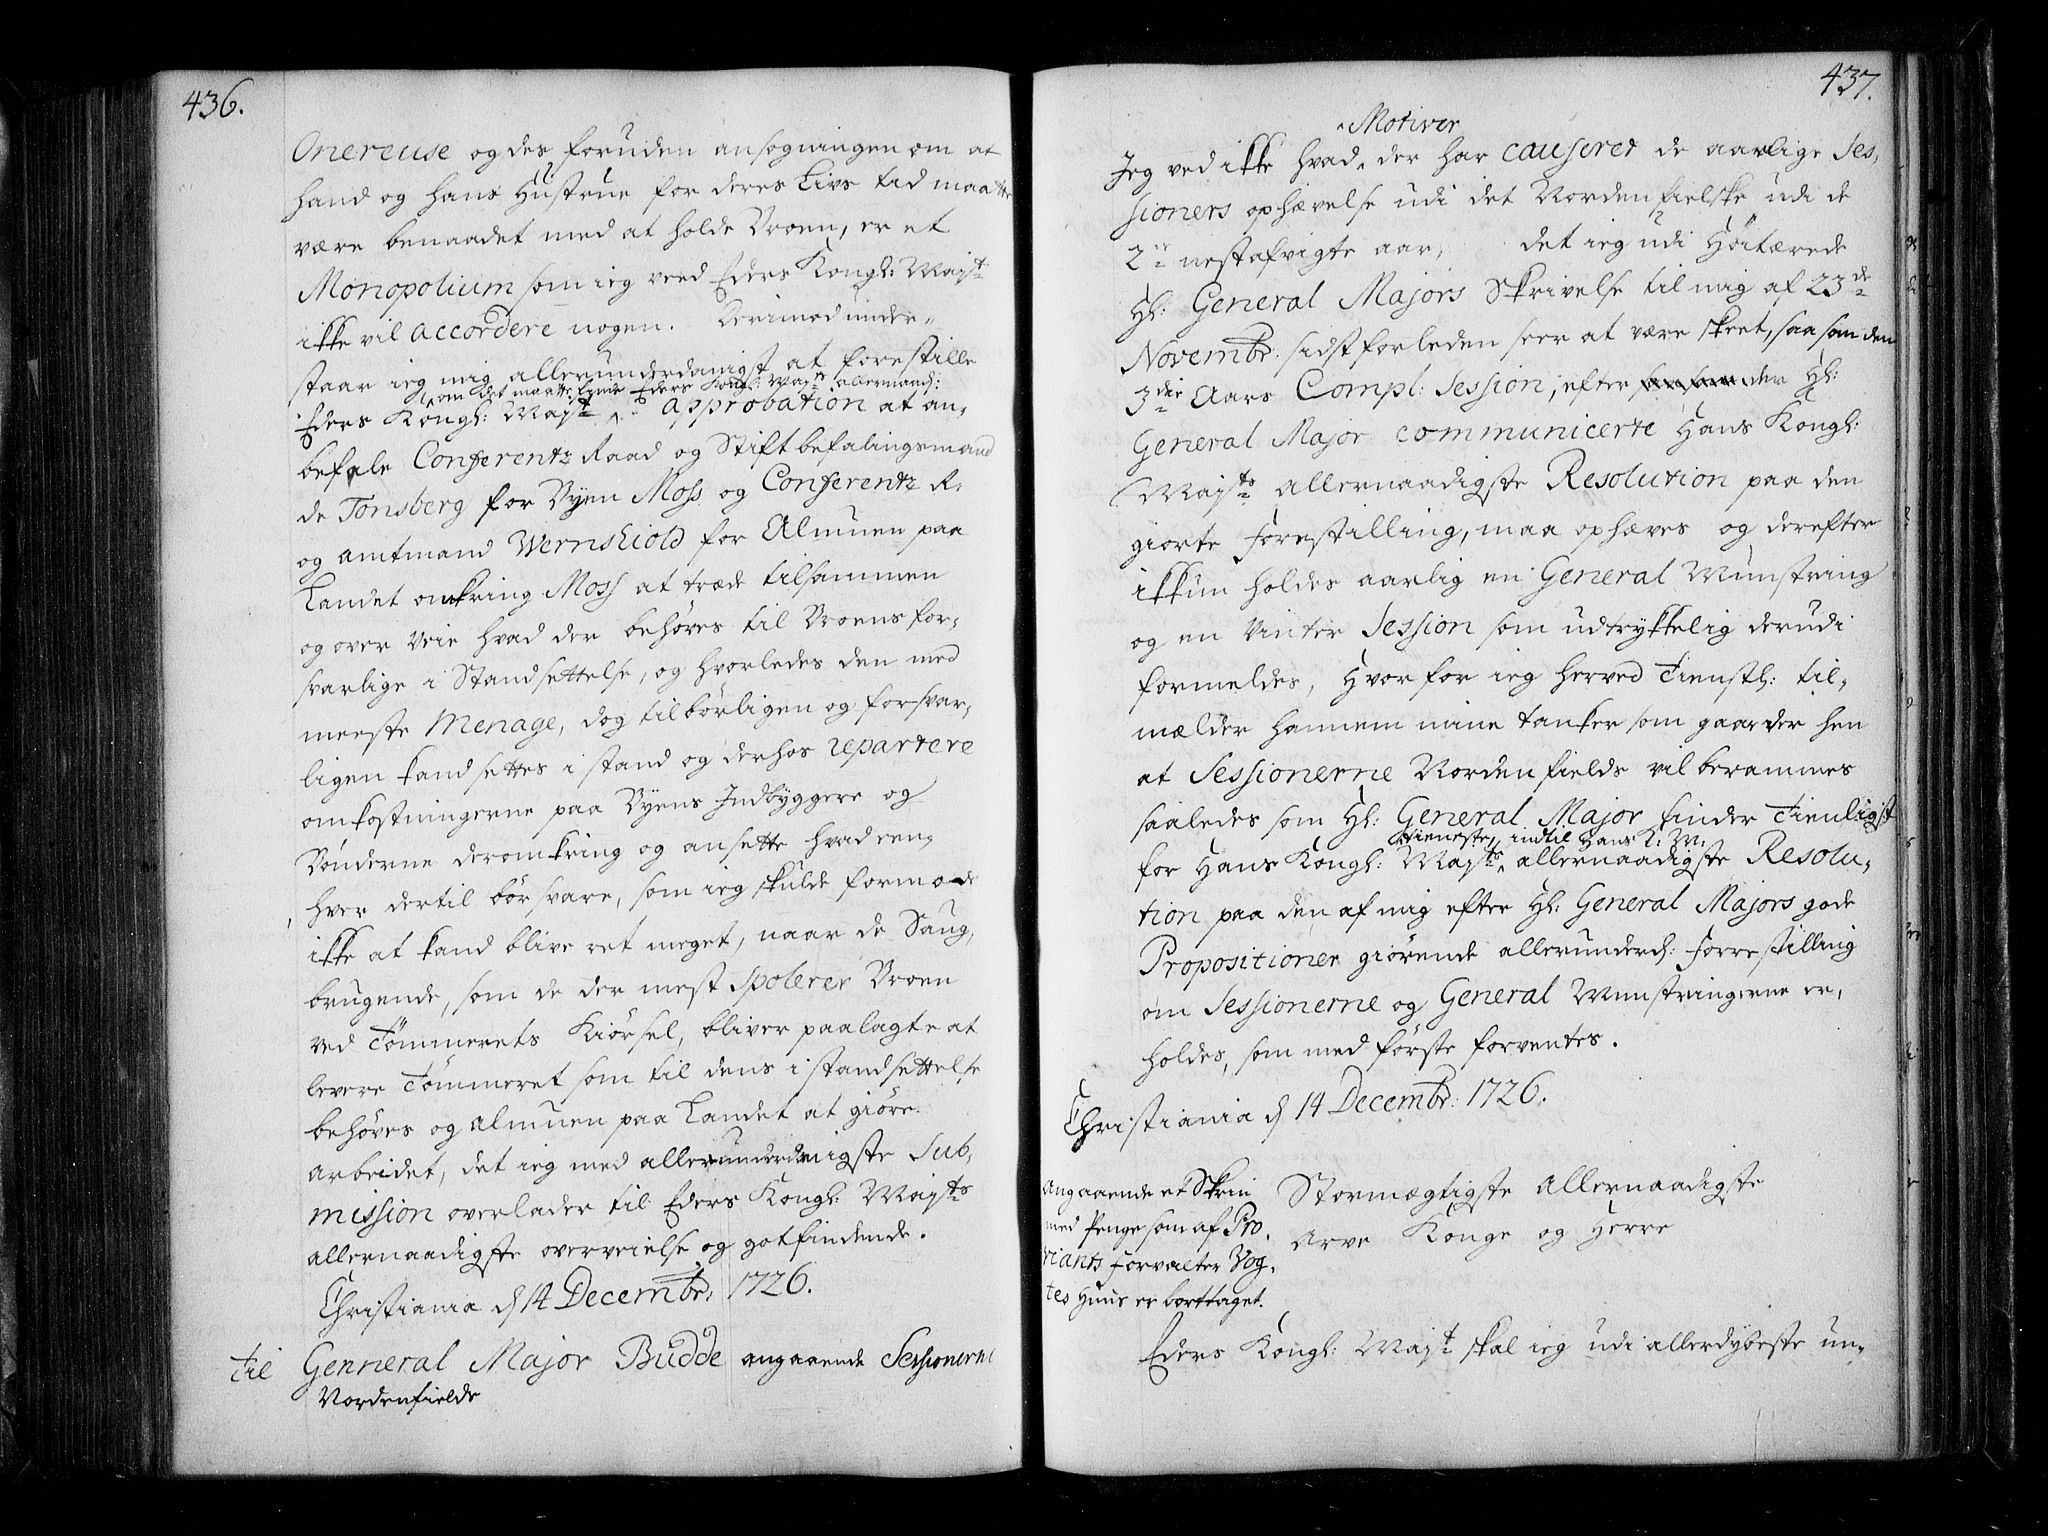 436.
Onereuse og des foruden ansøgningen om at
hand og hans Hustrue for deres Livs tid maatte
være benaadet med at holde Broen, er et
Monopolium som ieg veed Eders Kongl: Mayt
ikke vil accordere nogen. Derimod under-
staar ieg mig allerunderdanigst at forestille
om det maatte Eders Kongl: Mayts allernaad:
Eders Kongl: Mayt approbation at an-
befale Conferentz Raad og Stiftbefalingsmand
de Tonsberg for Byen Moss og Conferentz R.
og amtmand Wernskiold for Almuen paa
Landet omkring Moss at træde tilsammen
og over veie hvad der behøves til Broens for-
svarlige i Standsettelse, og hvorledes den med
meeste Menage, dog tilbørligen og forsvar-
ligen kand settes i stand og derhos repartere
omkostningerne paa Byens Indbyggere og
Bønderne deromkring og ansette hvad een-
hver dertil bør svare, som ieg skulde formode
ikke at kand blive ret meget, naar de Saug-
brugende, som de der mest spolerer Broen
ved Tømmerets Kiørsel, bliver paalagte at
levere Tømmeret som til dens istandsettelse
behøves og almuen paa Landet at giøre
arbeidet, det ieg med allerunderdanigste Sub-
mission overlader til Eders Kongl: Mayts
allernaadigste overveielse og gotfindende.
Christiania d 14 Decembr: 1726.
til Genneral Major Budde angaaende Sessionerne
Nordenfields
437.
Motiver
Jeg ved ikke hvad der har causeret de aarlige Ses-
sioners ophævelse udi det Nordenfielske udi de
2de nestafvigte aar, det ieg udi Høitærede
Hr: General Majors Skrivelse til mig af 23de
Novembr: sidstforleden seer at være skeet, saasom den
3die Aars Compl: Session, efter der Hr:
General Major communicerte Hans Kongl:
Mayts allernaadigste Resolution paa den
giorte Forestilling, maa ophæves og derefter
ikkun holdes aarlig en General Munstring
og en Vinter Session som udtrykkelig derudi
formeldes, Hvorfor ieg herved Tienstl: til-
mælder hannem mine tanker som gaar der hen
at Sessionerne Nordenfields vil berammes
saaledes som Hr: General Major finder Tienligst
tieneste, indtil Hans K: M:
for Hans Kongl: Mayts allernaadigste Resolu-
tion paa den af mig efter Hr: General Majors gode
Propositioner giørende allerunderd: Forrestilling
om Sessionerne og General Munstringerne er-
holdes, som med første forventes.
Christiania d 14 Decembr: 1726.
Angaaende et Skrin
med Penge som af Pro-
viants forvalter Vog-
tes Huus er borttaget.
Stormægtigste Allernaadigste
Arve Konge og Herre
Eders Kongl: Mayt skal ieg udi allerdybeste un-